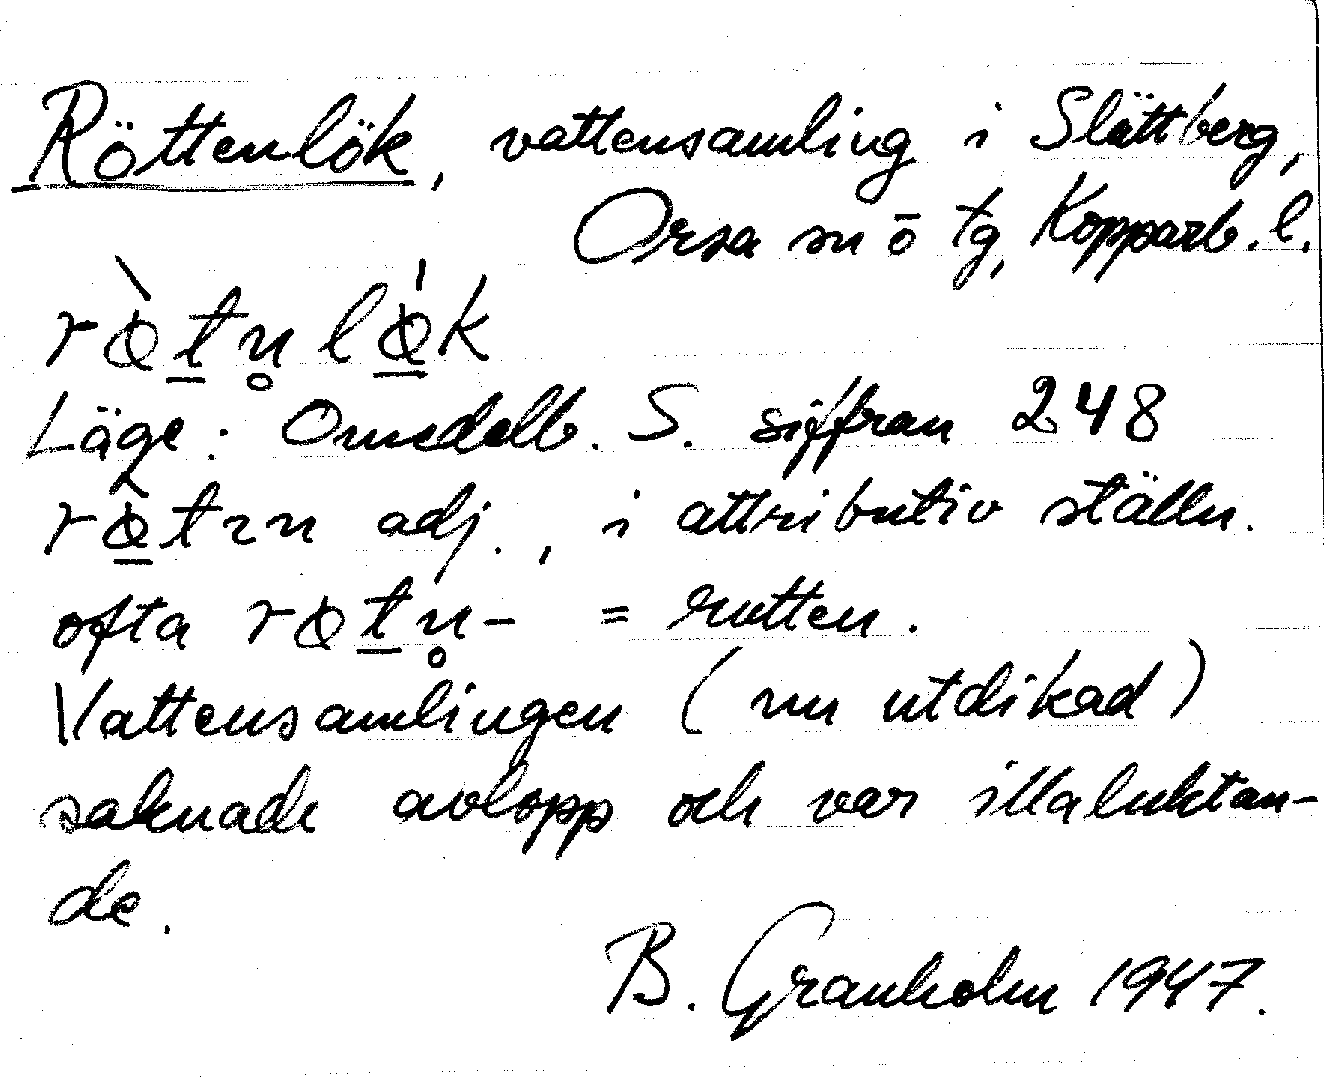 Röttenlök, vattensamling i Slättberg,
Orsa sn o tg, Kopparb. l.
rø̀t̲n̥lø̲̍k
Läge: Omedelb. S. siffran 248
rø̲̀tɪn adj., i attributiv ställn.
ofta røt̲n̥- = rutten.
Vattensamlingen (nu utdikad)
saknade avlopp och var illaluktan-
de.
B. Granholm 1947.